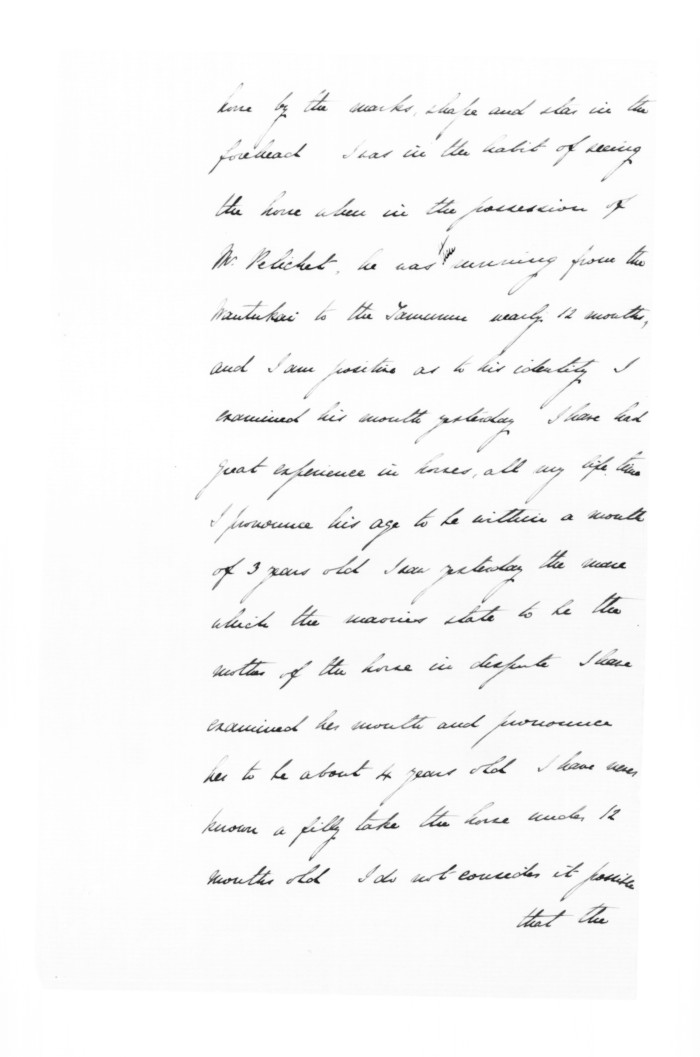 horse by the marks, shape and star in the
forehead I was in the habit of seeing
the horse when in the possession of
Mr. Pelichet, he was running from the
to the nearly 12 months,
and I am positive as to his identity I
examined his mouth yesterday I have had
great experience in horses, all my life time
I pronounce his age to be within a month
of 3 years old I saw yesterday the mare
which the maories state to be the
mother of the horse in dispute I have
examined her mouth and pronounce
her to be about 4 years old I have never
known a filly take the horse under 12
months old I do not consider it possible
that the